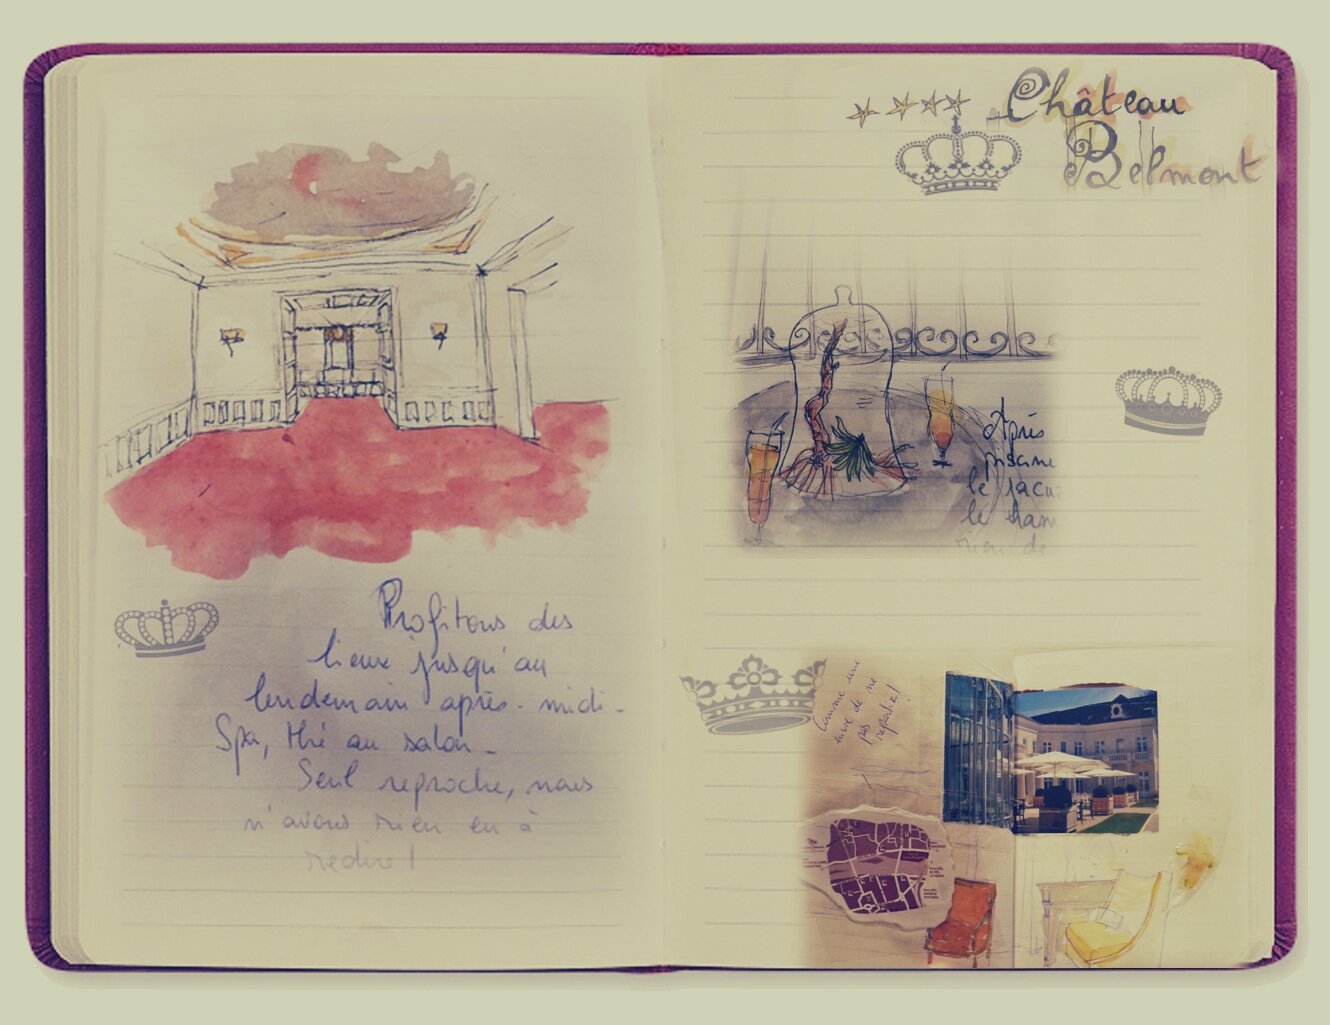 Profitons des
lieux jusqu'au
lendemain après-midi.
Spa, thé au salon.
Seul reproche, nous
n'avons rien eu à
redire!
Château
Belmont
Après
le jacu
le ham
rien de
Comme une
envie de ne
pas repartir!